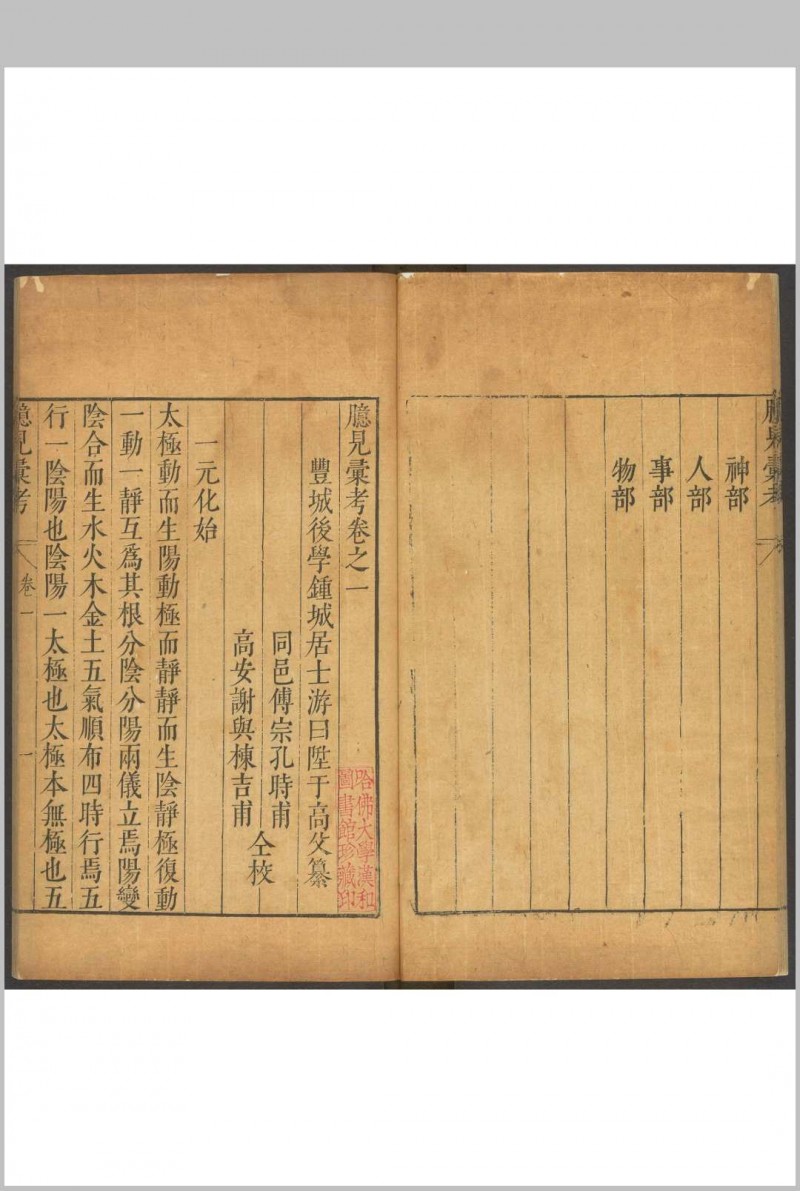 臆見彙考
神部
人部
事部
物部
臆見彙考卷之一
豐城後學鍾城居士游日陞于高父纂
同邑傅宗孔時甫
高安謝與棟吉甫
仝校
一元化始
太極動而生陽動極而靜靜而生陰靜極復動
一動一靜互爲其根分陰分陽兩儀立焉陽變
陰合而生水火木金土五氣順布四時行焉五
行一陰陽也陰陽一太極也太極本無極也五
臆見彙考
卷一
一
哈佛大學漢和
圖書館珍藏印